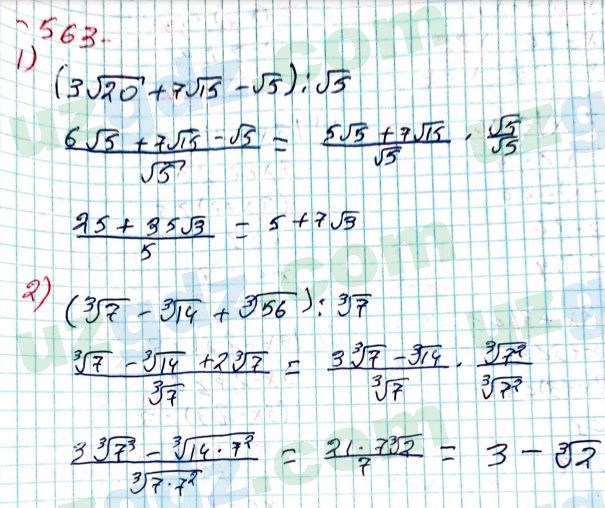 563.
1)
(3√20 + 7√15 - √5) : √5
(6√5 + 7√15 - √5)/√5 = (5√5 + 7√15)/√5 · √5/√5
(25 + 35√3)/5 = 5 + 7√3
2) (∛7 - ∛14 + ∛56) : ∛7
(∛7 - ∛14 + 2∛7)/∛7 = (3∛7 - ∛14)/∛7 · ∛7²/∛7²
(3∛7³ - ∛(14·7²))/∛(7·7²) = (21 · 7∛2)/7 = 3 - ∛2
uzgdz.com